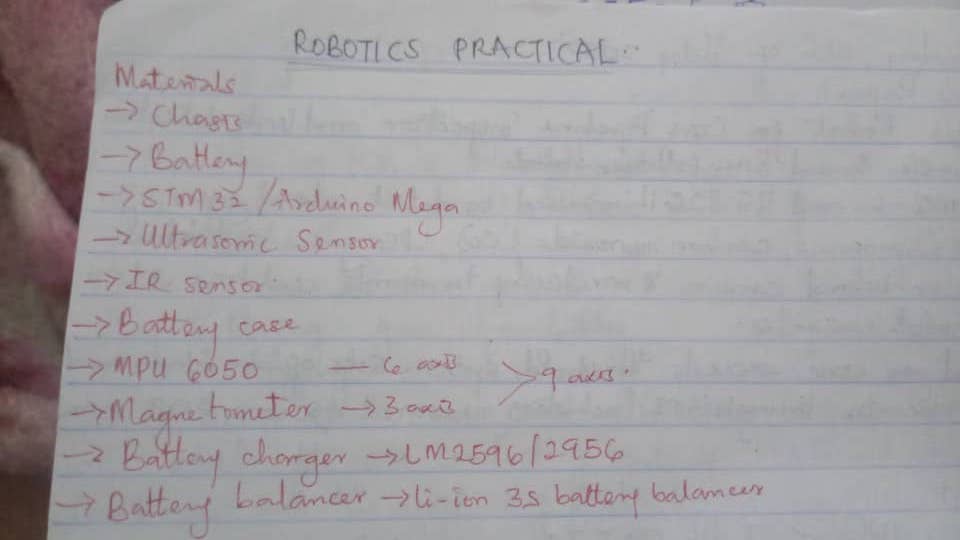 ROBOTICS PRACTICAL..
Materials
→ Chasis
→ Battery
→ STM 32 / Arduino Mega
→ Ultrasonic Sensor
→ IR sensor.
→ Battery case
→ MPU 6050 — 6 axis > 9 axis.
→ Magnetometer → 3 axis
→ Battery charger → LM2596/2956
→ Battery balancer → li-ion 3s battery balancer